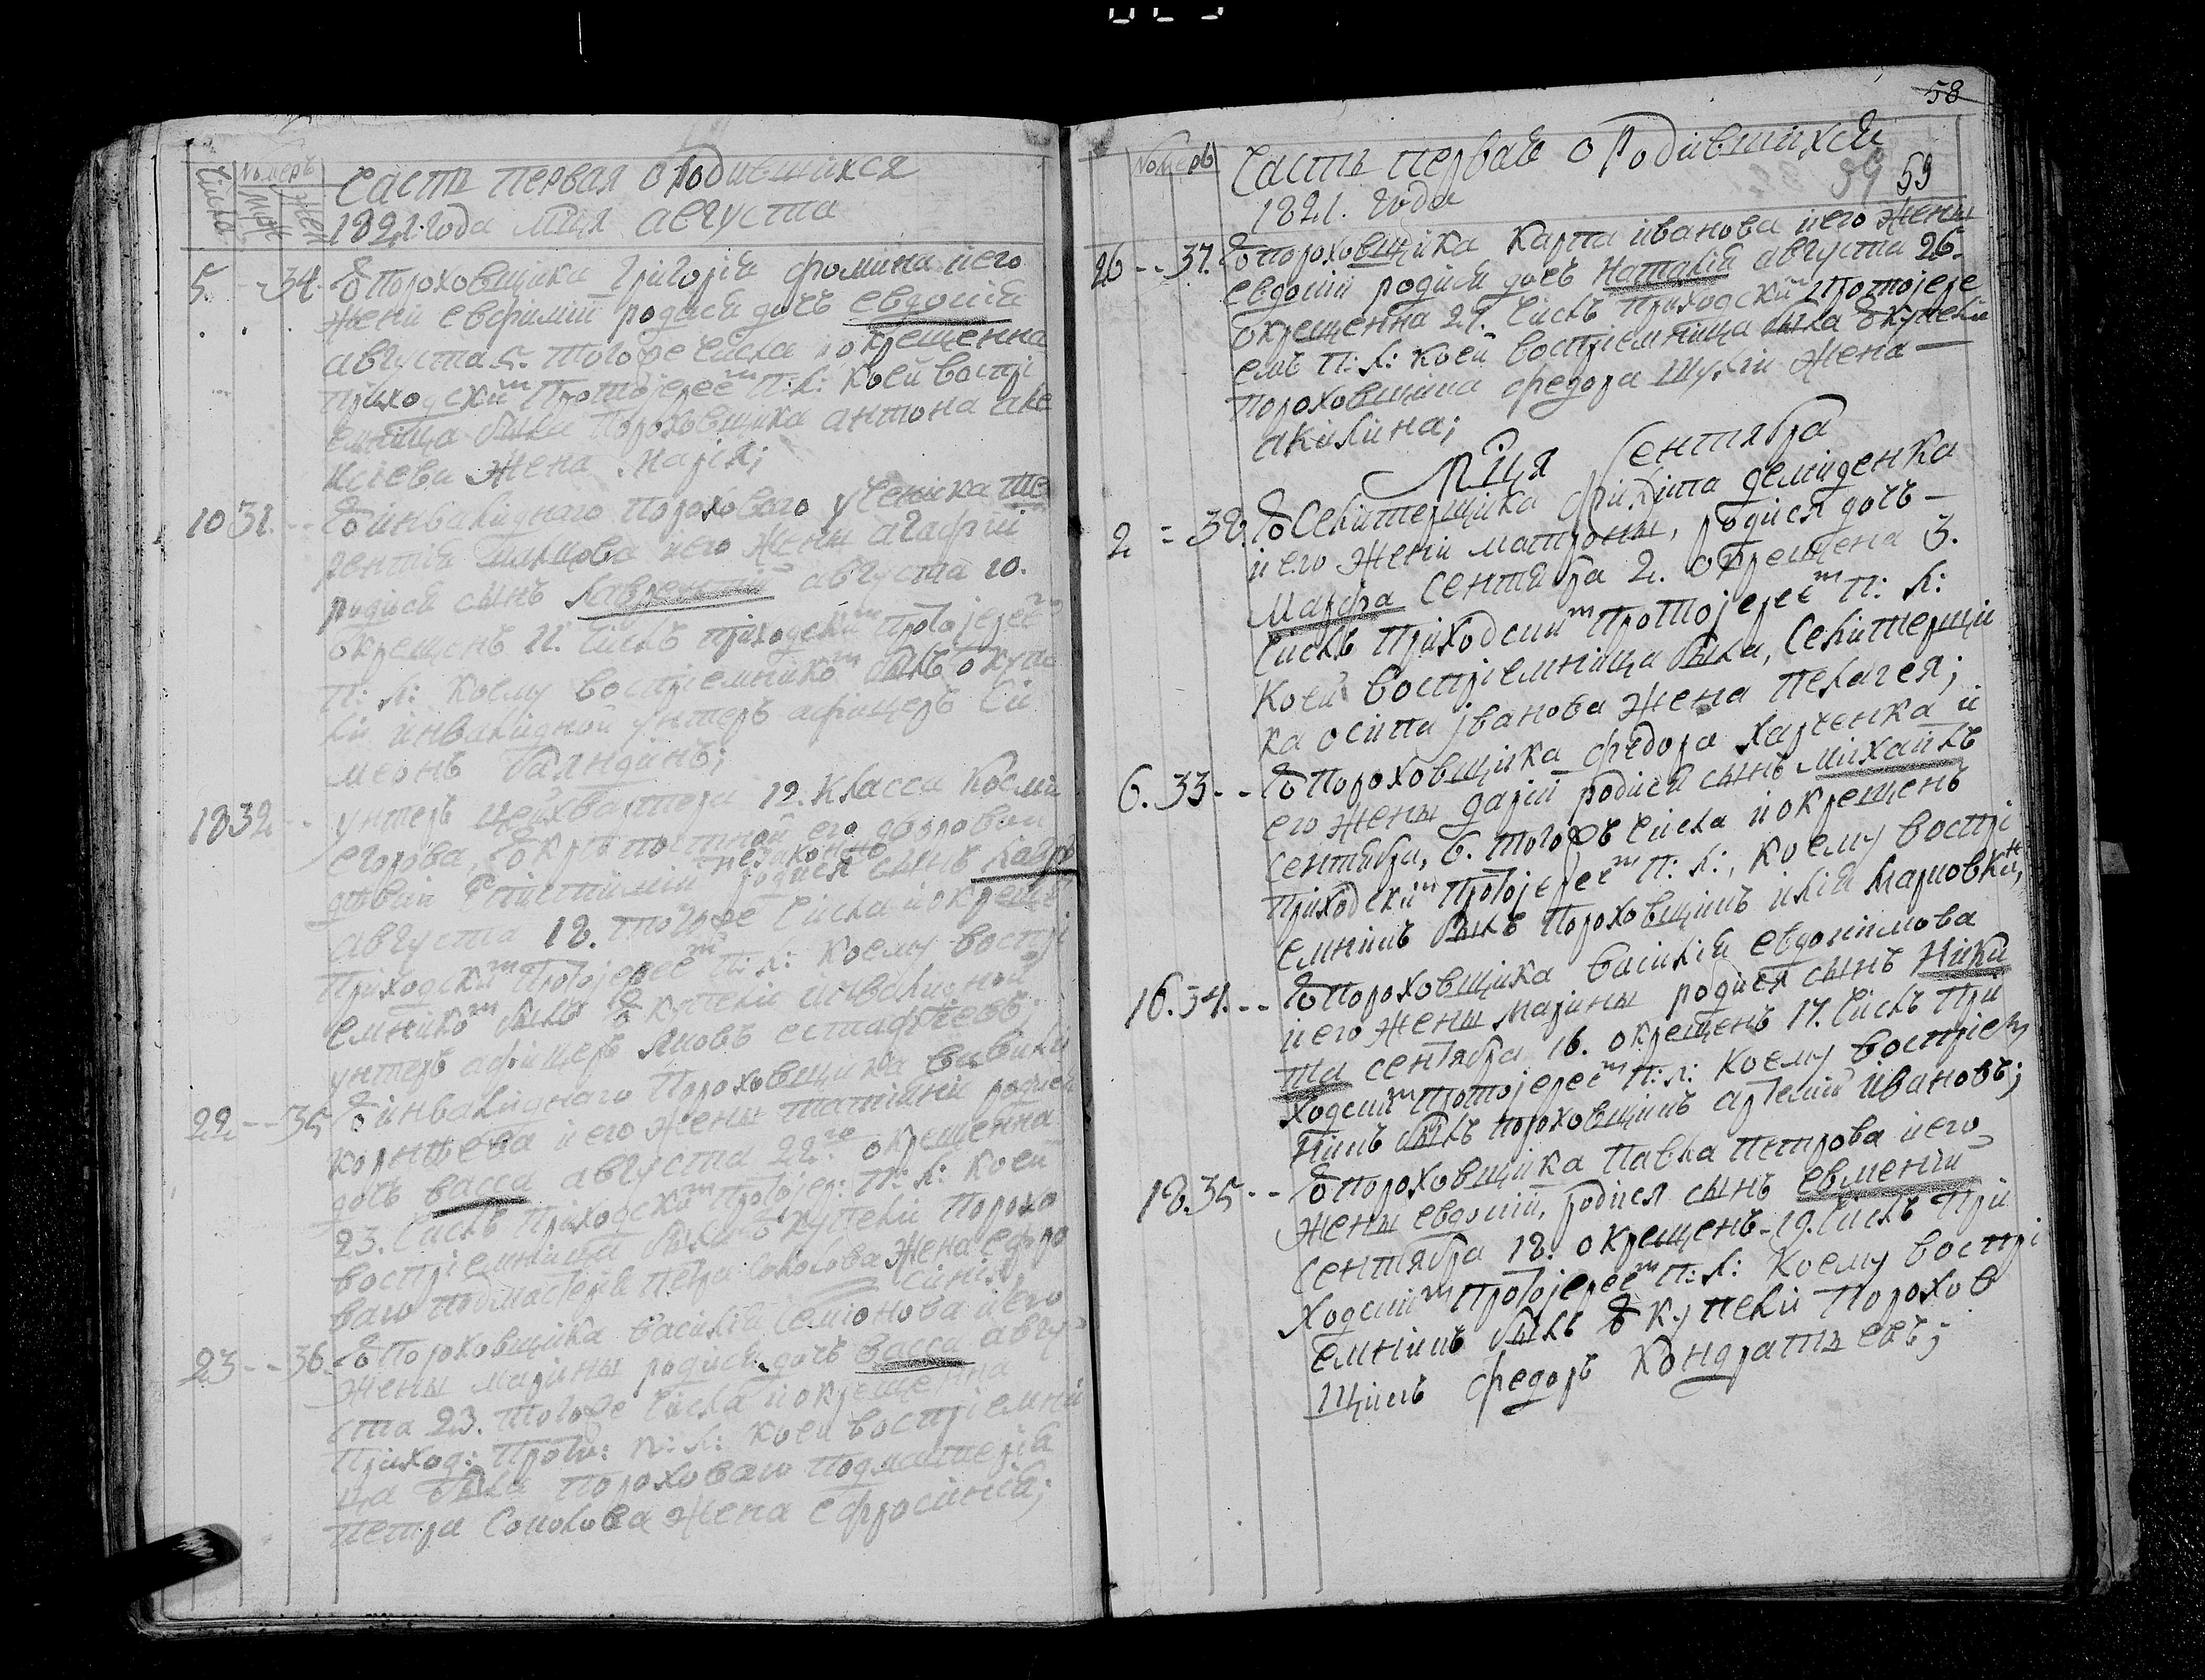 Числа
Номеръ
Муж
Жен
Часть первая о Родившихся
1821. года мця августа
5. - - 34. У Пороховщика Григорія фомина и его
жены евфиміи родися дочь евдокія
августа 5. того же числа и окрещенна
приходскимъ Протојереемъ П: Л: коей воспрі
емница была Пороховщика антона але
ксіева жена марія;
10 31. - - У инвалиднаго пороховаго ученика те
рентія и его жены агафіи
родися сынъ Лаврентій августа 10.
окрещенъ 11. числъ приходскимъ протојереемъ
П: Л: коему воспріемникомъ былъ у купе
ли инвалидной унтеръ афицеръ Си
меонъ баяндинъ;
18 32 - - унтеръ цейхвартера 12. класса косми
егорова, у крѣпостной его дворовой
дѣвки незаконно родися сынъ Лавръ
августа 18. того же числа и окрещенъ
Приходскимъ протојереемъ П: Л: коему воспрі
емникомъ былъ у купели инвалидной
унтеръ афицеръ Яковъ естафіевъ;
22 - - 35 У инвалиднаго Пороховщика вавилы
корнѣева и его жены татіяни родися
дочь васса августа 22го окрещенна
23. числъ приходскимъ протојер: П: Л: коей
воспріемница была у купели порохо
ваго подмастерья петра соколова жена ефро
синія;
23 - - 36. У Пороховщика василія Семіонова и его
жены марины родися дочь васса авгу
ста 23. того же числа и окрещенна
приход: прото: П: Л: коей воспріемни
ца была пороховаго подмастерія
петра Соколова жена ефросинія;
58
Номеръ
Часть первая о Родившихся
1821. года
59
26 - - 37. У пороховщика карпа иванова и его жены
евдокіи родися дочь Наталія августа 26.
окрещенна 27. числъ приходскимъ протојере
емъ П: Л: коей воспріемница была у купели
пороховщика федора жена
акилина;
Мця Сентября
2 - 38. У Селитерщика филипа демиденка
и его жены матроны, родися дочь
марфа сентября 2. окрещена 3.
числъ приходскимъ протојереемъ П: Л:
коей воспріемница была, Селитерщи
ка осипа јванова жена пелагея;
6. 33 - - У Пороховщика федора харченка и
его жены даріи родися сынъ михаилъ
сентября, 6. того жъ числа и окрещенъ
приходскимъ протојереемъ П: Л:, коему воспрі
емникъ былъ пороховщикъ илія
16. 34. - - У Пороховщика василія евдокимова
и его жены марины родися сынъ Ники
та сентября 16. окрещенъ 17. числъ при
ходскимъ протојереемъ П: Л: коему воспріем
никъ былъ пороховщикъ артемій ивановъ;
18. 35 - - У пороховщика павла петрова и его
жены евдокіи, родися сынъ евменій
сентября 18. окрещенъ 19. числъ при
ходскимъ протојереемъ П: Л: коему воспрі
емникъ былъ у купели порохов
щикъ федоръ кондратьевъ;